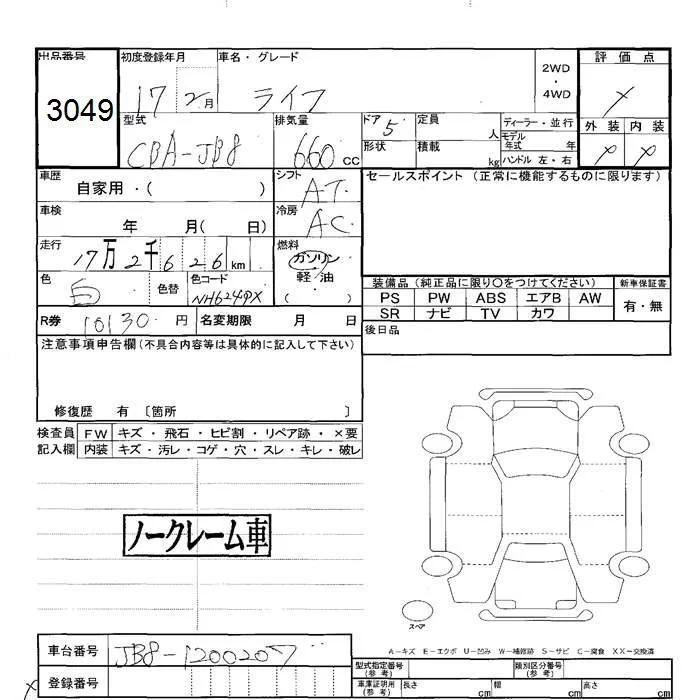 出品番号
3049
初度登録年月
17 2月
車名・グレード
ライフ
2WD
・
4WD
評価点
外装 内装
型式
CBA-JB8
排気量
660 cc
ドア 5
形状
定員 人
積載 kg
ディーラー・並行
モデル
年式 年
ハンドル 左・右
車歴
自家用・( )
シフト
AT
車検
年 月( 日)
冷房
AC
走行
17万2千626km
燃料
ガソリン
軽・油
( )
色
白
色替
色コード
NH624PX
R券
10130円
名変期限 月 日
セールスポイント (正常に機能するものに限ります)
装備品 (純正品に限り○をつけてください)
PS PW ABS エアB AW
SR ナビ TV カワ
新車保証書
有・無
後日品
注意事項申告欄(不具合内容等は具体的に記入して下さい)
修復歴 有 〔箇所 〕
検査員
記入欄
FW キズ・飛石・ヒビ割・リペア跡・×要
内装 キズ・汚レ・コゲ・穴・スレ・キレ・破レ
ノークレーム車
スペア
A-キズ E-エクボ U-凹み W-補修跡 S-サビ C-腐食 XX-交換済
車台番号
JB8-1200207
登録番号
型式指定番号
(参考)
類別区分番号
(参考)
車庫証明用
(参考)
長さ cm
幅 cm
高さ cm